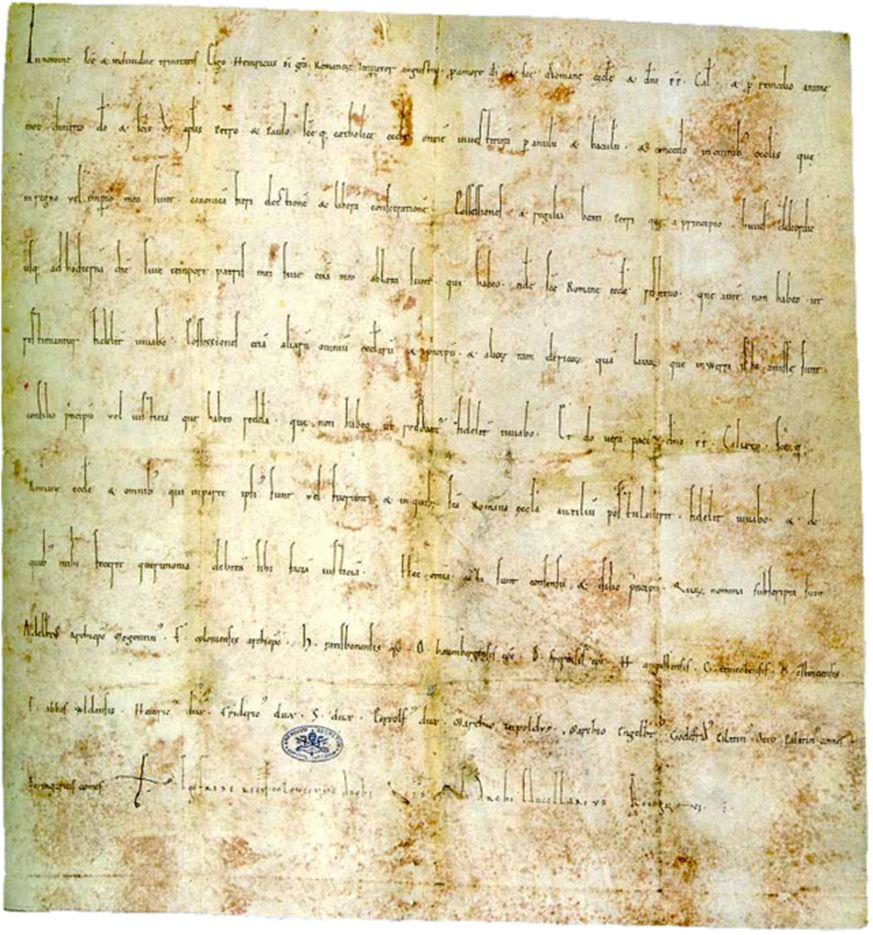 In nomine scę & individuę trinitatis Ego Heinricus di gra Romanorꝫ Imperator augustus p amore di & scę Romanę ecclę & dni pp Cal & p remedio animę
meę dimitto do & scis di aplis Petro & Paulo scę q catholicę ecclę omnē investiturā p anulū & baculū & concedo in omnib ecclis que
in regno vel impio meo sunt canonicā fieri electionē & liberā consecrationē Possessiones & regalia beati Petri que a principio huius discordię
usq ad hodiernā diē sive tempore patris mei sive etiā meo ablata sunt que habeo eidē scę Romanę ecclę restituo que autē non habeo ut
restituantur fidelit iuvabo Possessiones etiā aliarū omniū ecclarū & principū & alioꝝ tam clericoꝝ quā laicoꝝ que in werra ista amissę sunt
consilio principū vel iusticia que habeo reddā que non habeo ut reddant fidelit iuvabo Et do verā pacē dno pp Calixto scę q
Romanę ecclę & omnib qui in parte ipsi sunt vel fuerunt & in quib sca Romana ecclā auxiliū postulaverit fidelit iuvabo & de
quib mihi fecerit querimoniā debitā sibi faciā iusticiā Hec omia acta sunt consensu & csilio principū Quoꝝ nomina subscripta sunt
Adelbtus archiepc Mogontin F coloniensis archiepc H ratisbonensis epc O bauenbergensis epc B spirensis epc H augustensis G traiectensis O constanciensis
E abbas uldensis Heinric dux Fridericus dux S dux Pertolfus dux Marchio teipoldus Marchio Engelbt Godefrid Palatin Otto Palatin comes
Beringarius comes Fridericus coloniensis Archi eps & Archi cancellarius Recognovi